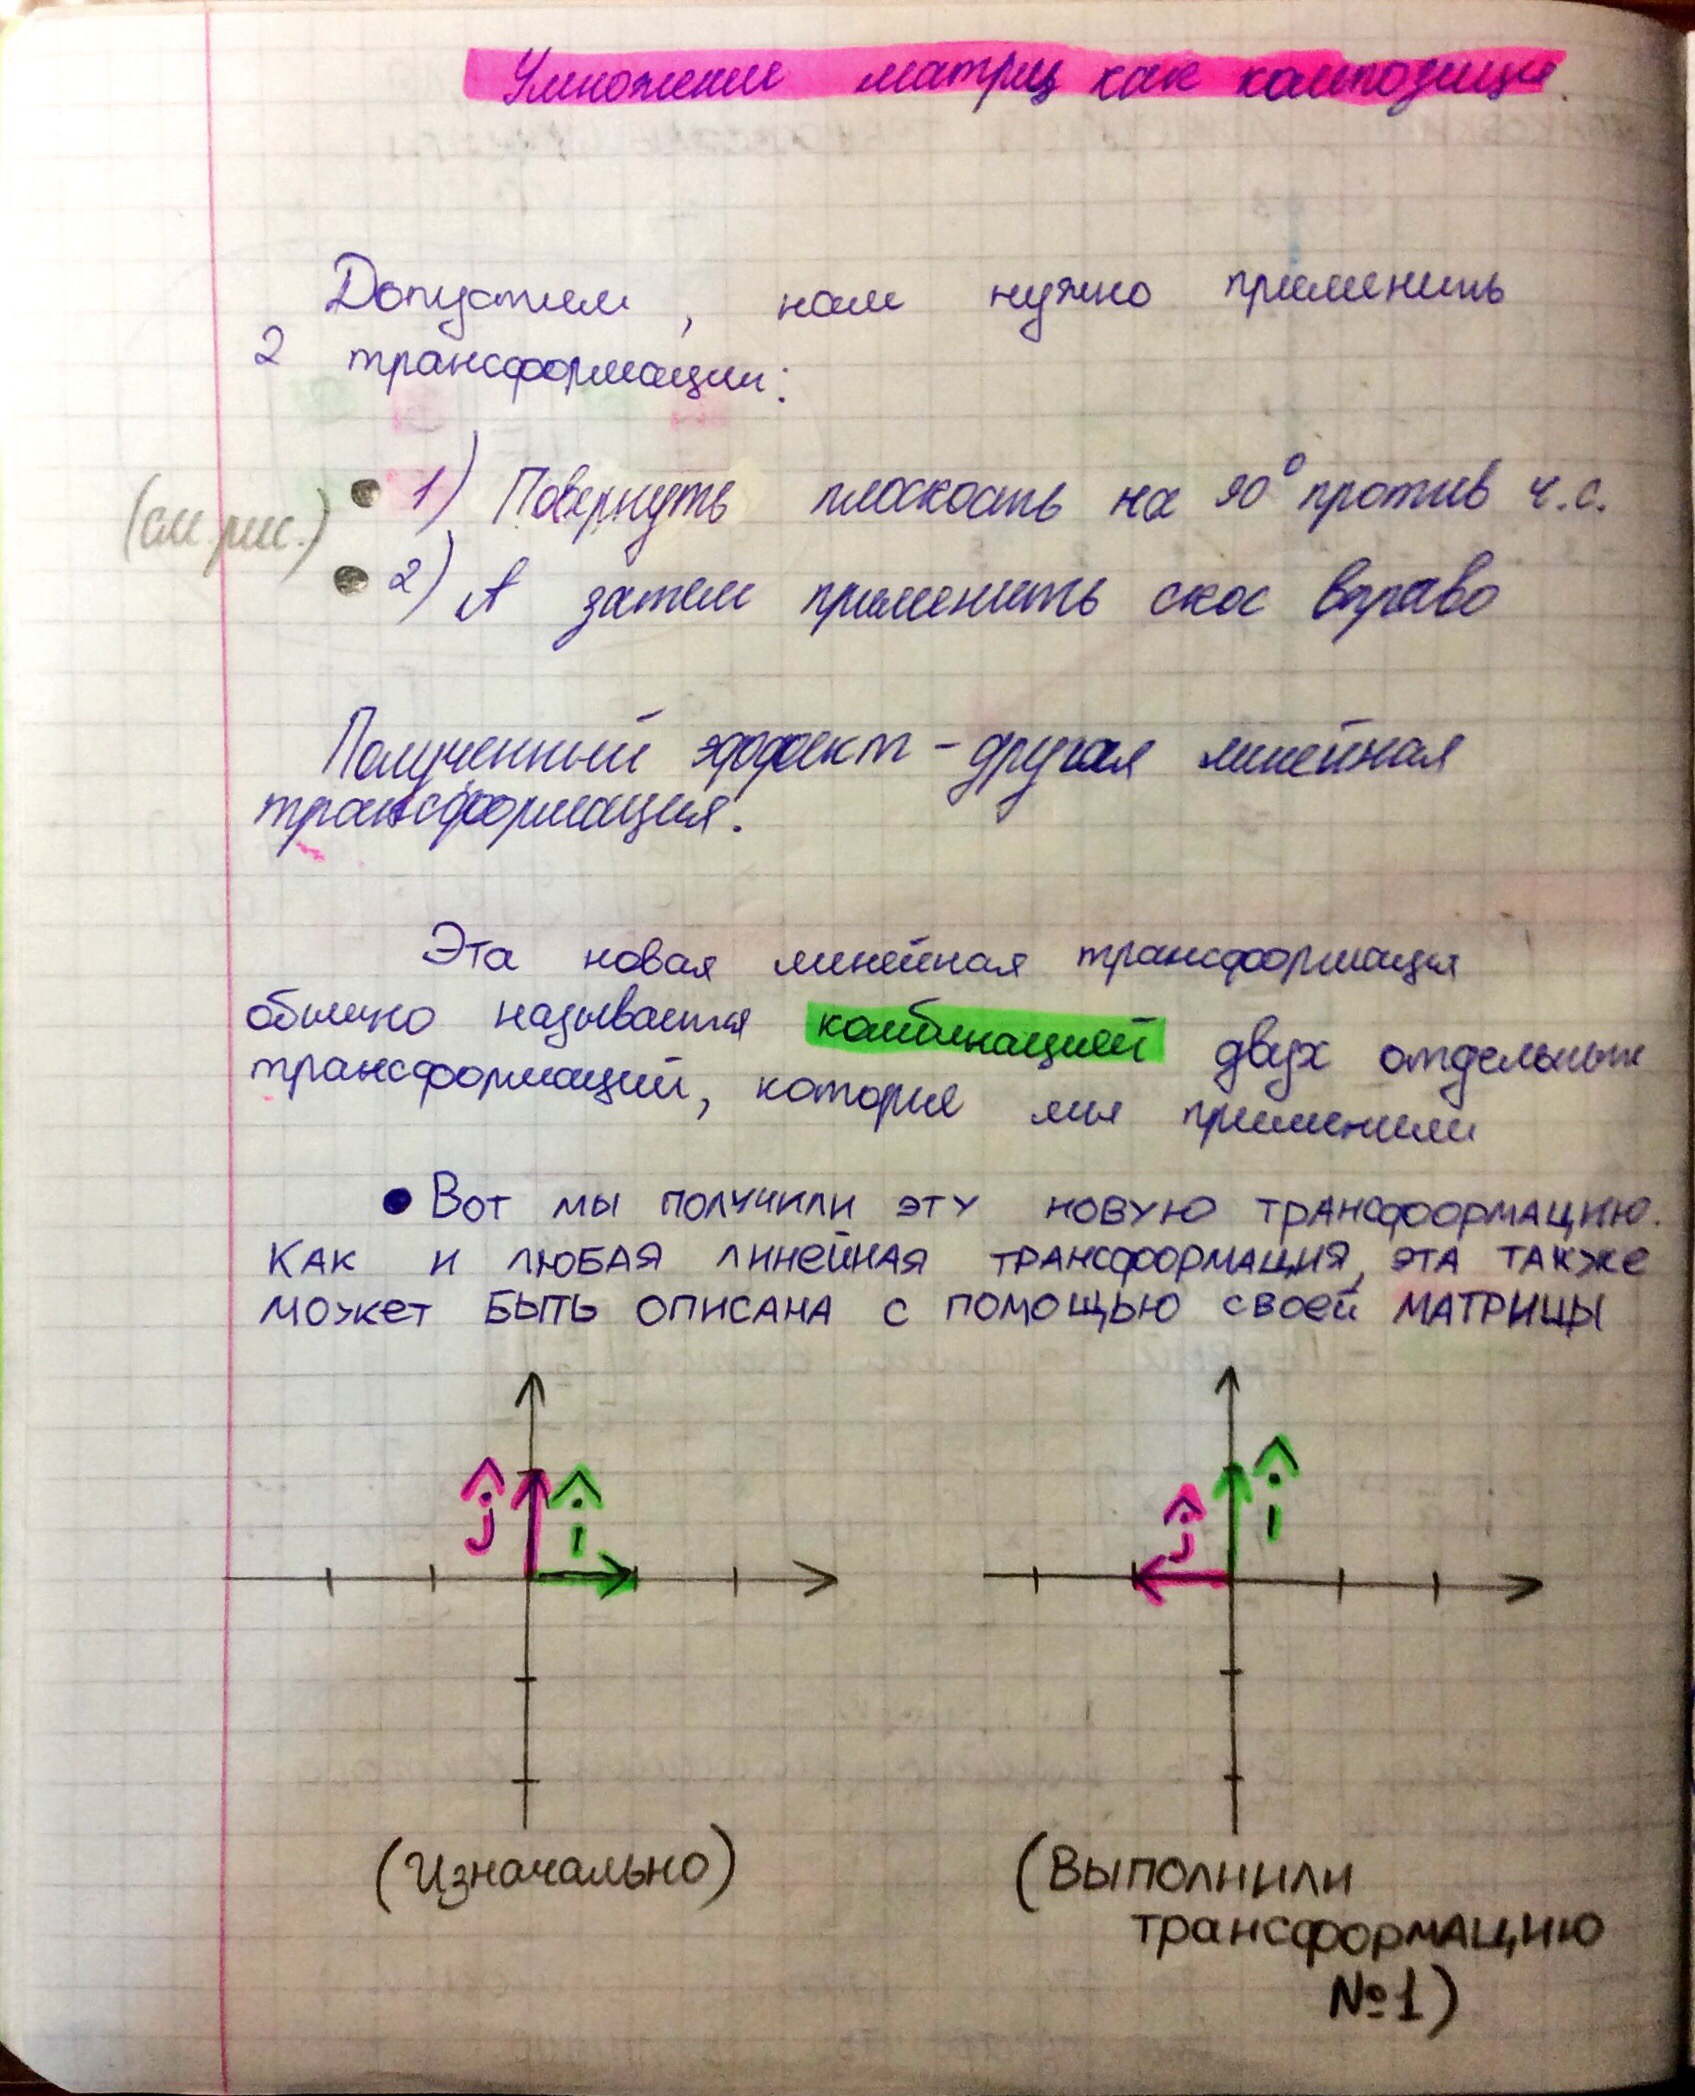 Умножение матриц как композиция
Допустим, нам нужно применить
2 трансформации:
(см. рис.)
1) Повернуть плоскость на 90° против ч.с.
2) А затем применить скос вправо
Полученный эффект - другая линейная
трансформация.
Эта новая линейная трансформация
обычно называется комбинацией двух отдельных
трансформаций, которые мы применили
• Вот мы получили эту новую трансформацию.
Как и любая линейная трансформация, эта также
может быть описана с помощью своей матрицы
ĵ î
ĵ î
(Изначально)
(Выполнили
трансформацию
№1)